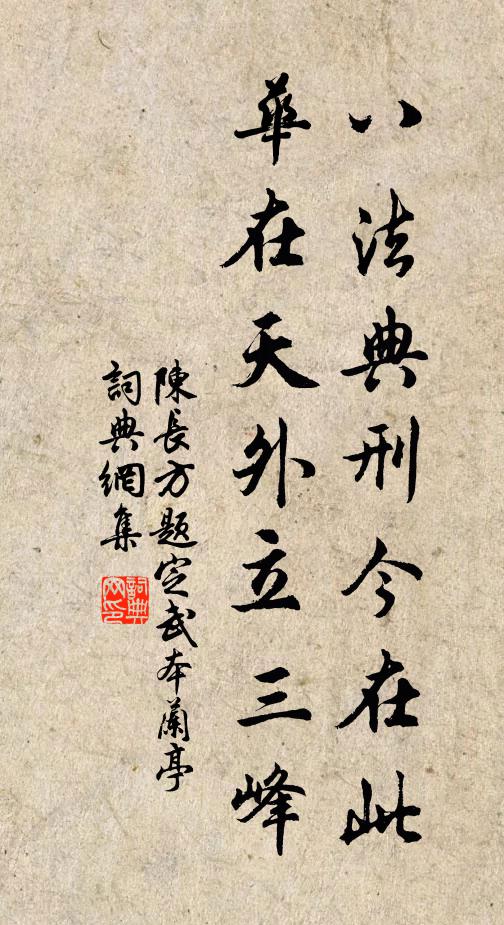 八法典刑今在此
華在天外立三峰
陳長方題定武本蘭亭
詞典網集
詞典網印